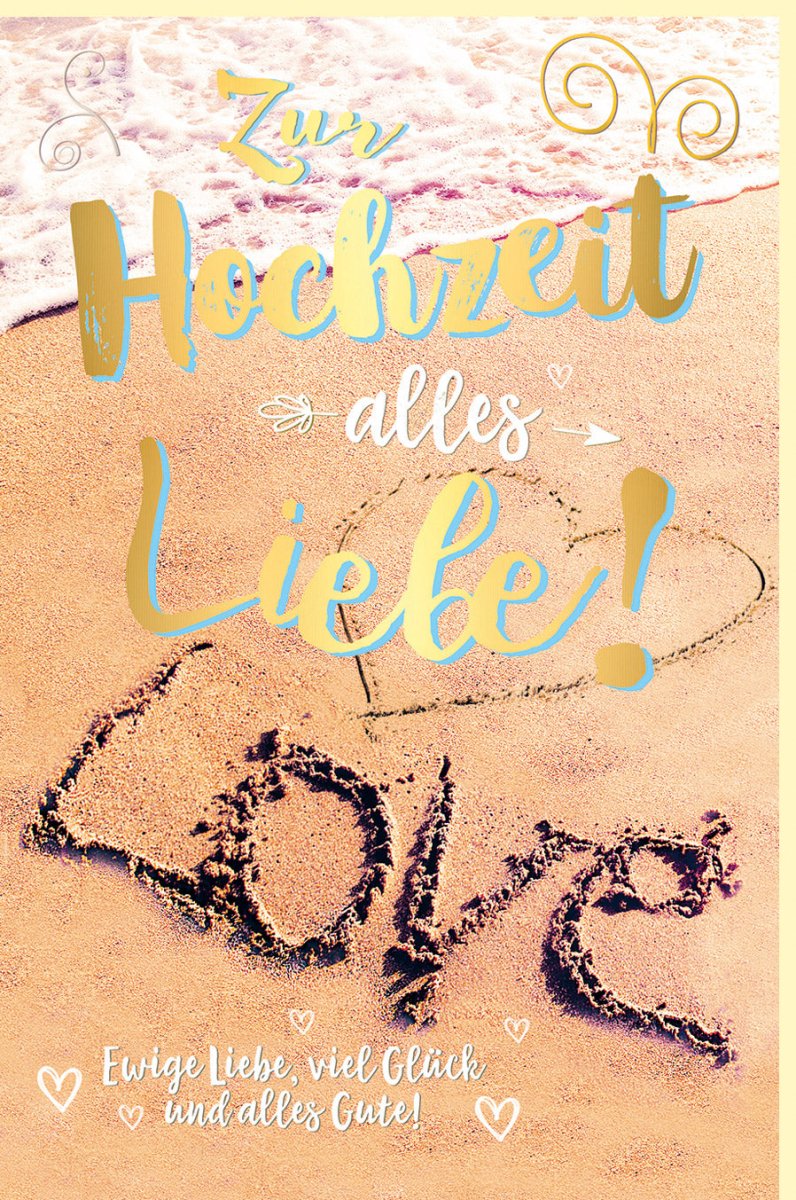 Zur
Hochzeit
alles
Liebe!
Love
Ewige Liebe, viel Glück
und alles Gute!